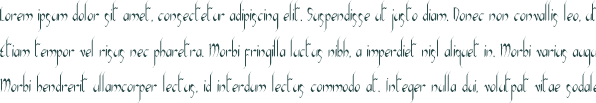 Lorem ipsum dolor sit amet, consectetur adipiscing elit. Suspendisse ut justo diam. Donec non convallis leo, ut
Etiam tempor vel risus nec pharetra. Morbi fringilla luctus nibh, a imperdiet nisl aliquet in. Morbi varius augu
Morbi hendrerit ullamcorper lectus, id interdum lectus commodo at. Integer nulla dui, volutpat vitae sodale